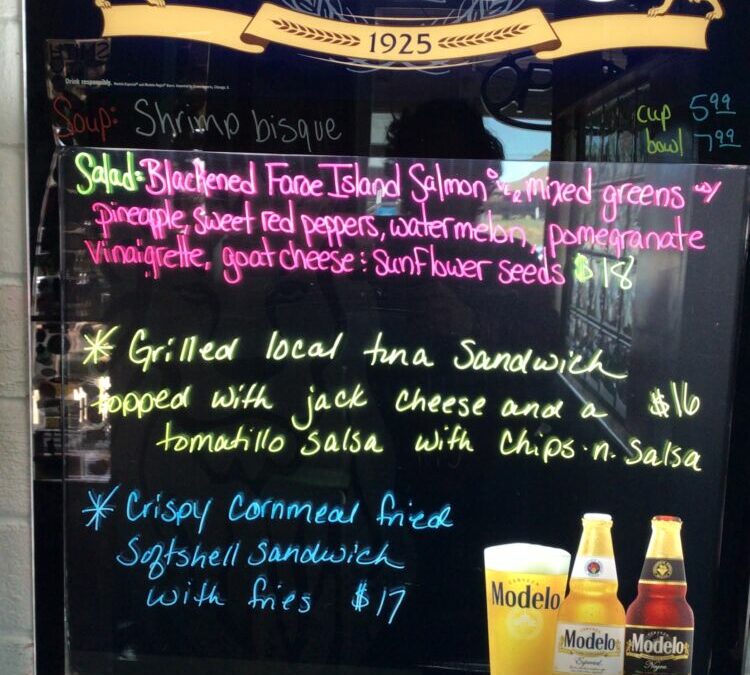 1925
Drink responsibly.
Soup: Shrimp bisque
cup 5.99
bowl 7.99
Salad: Blackened Faroe Island Salmon mixed greens w/
pineapple, sweet red peppers, watermelon, pomegranate
vinaigrette, goat cheese : sunflower seeds $18
* Grilled local tuna sandwich
topped with jack cheese and a $16
tomatillo salsa with chips n. salsa
* Crispy Cornmeal fried
Softshell sandwich
with fries $17
CERVEZA
Modelo
Modelo
Especial
Modelo
Negra